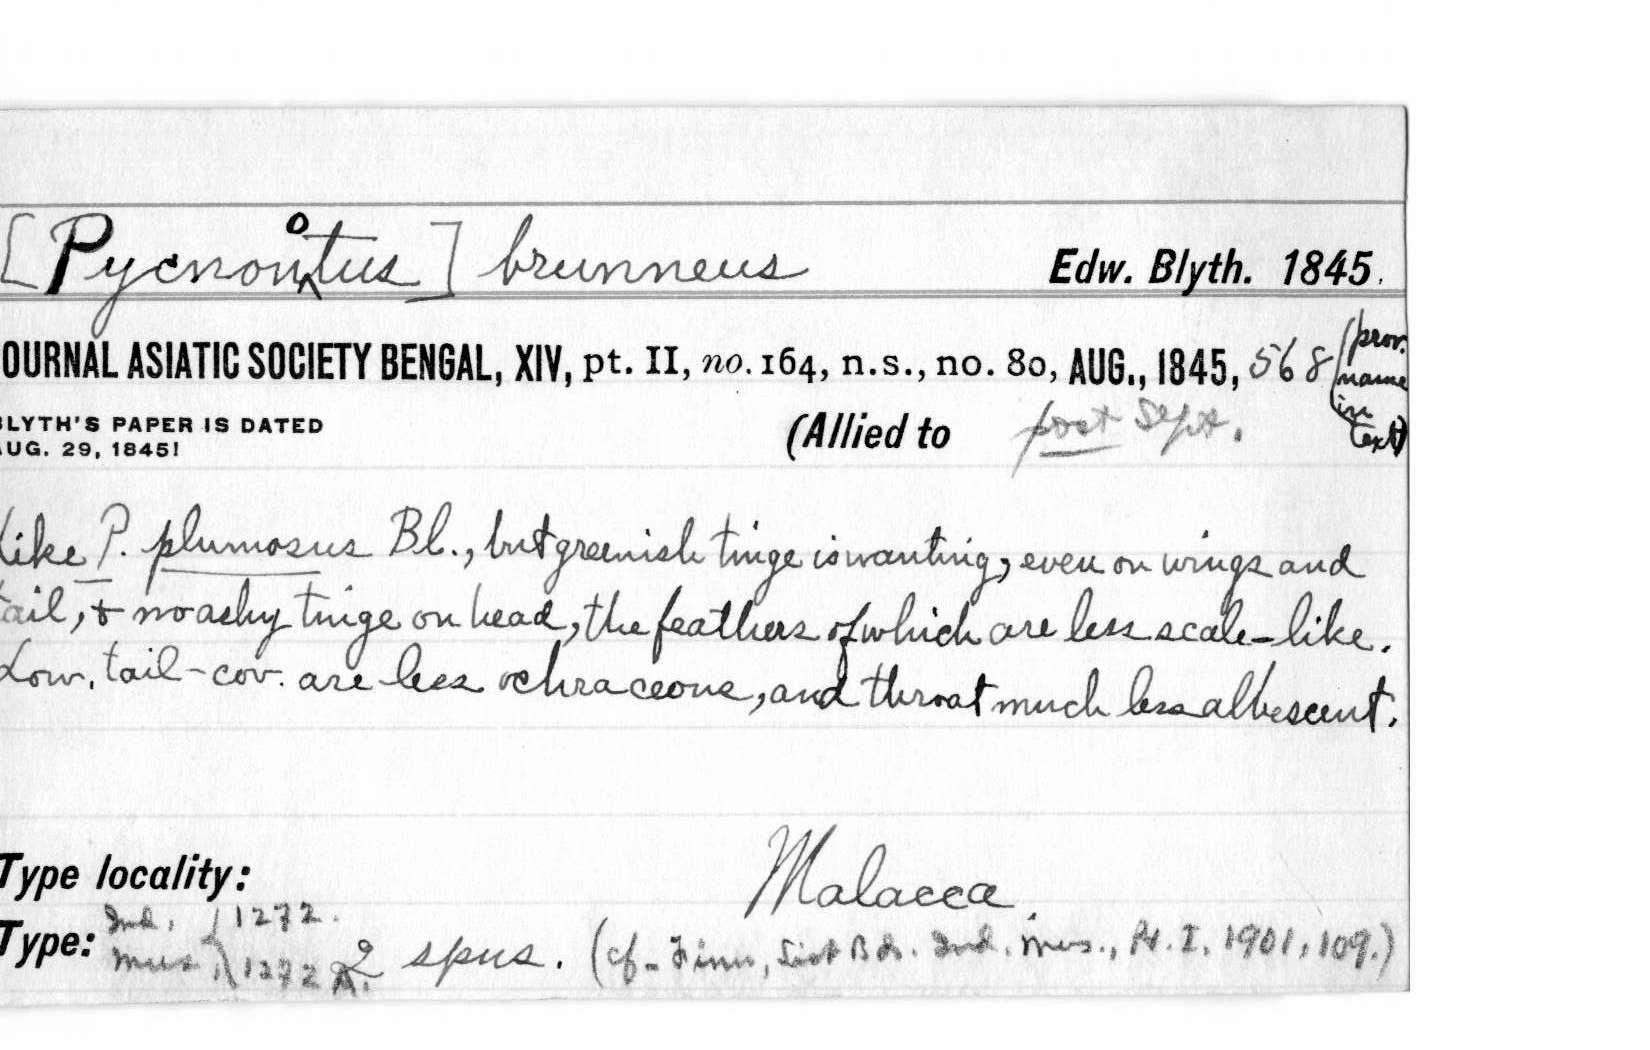 [Pycnonotus] brunneus Edw. Blyth. 1845.
OURNAL ASIATIC SOCIETY BENGAL, XIV, pt. II, no. 164, n.s., no. 80, AUG., 1845, 568 (prov. name in text)
BLYTH'S PAPER IS DATED
AUG. 29, 1845!
(Allied to post Sept.
Like P. plumosus Bl., but greenish tinge is wanting, even on wings and
tail, & no ashy tinge on head, the feathers of which are less scale-like.
Low. tail-cov. are less ochraceous, and throat much less albescent.
Type locality: Malacca
Type: Ind. Mus. { 1272. 1272 A. 2 spns. (cf. Finn, List Bds. Ind. Mus., Pt. I, 1901, 109.)